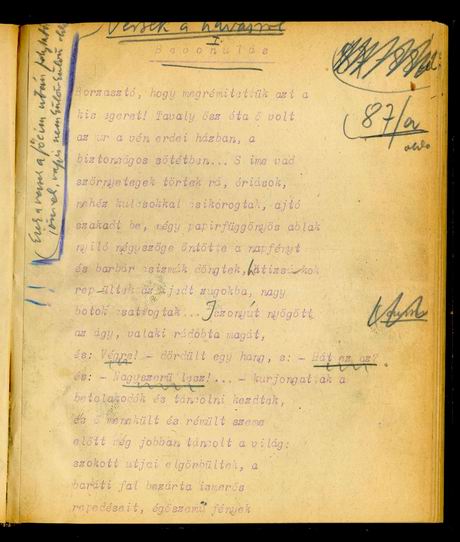 Versek a havasról
I.
Bevonulás
87/a
Borzasztó, hogy megrémitettük azt a
kis egeret! Tavaly ősz óta ő volt
az ur a vén erdei házban, a
biztonságos sötétben... S ime vad
szörnyetegek törtek rá, óriások,
nehéz kulcsokkal csikorogtak, ajtó
szakadt be, négy papirfüggönyös ablak
nyiló négyszöge öntötte a napfényt
és barbár csizmák döngtek, hátizsákok
repültek az ijedt zugokba, nagy
botok csattogtak... Iszonyút nyögött
az ágy, valaki rádobta magát,
és: Végre! - dördült egy hang, s: - Hát ez az?
és: - Nagyszerű lesz!... - kurjongattak a
betolakodók és táncolni kezdtek,
és ő menekült és rémült szeme
előtt még jobban táncolt a világ:
szokott utjai elgörbültek, a
baráti fal bezárta ismerős
repedéseit, égőszemű fények